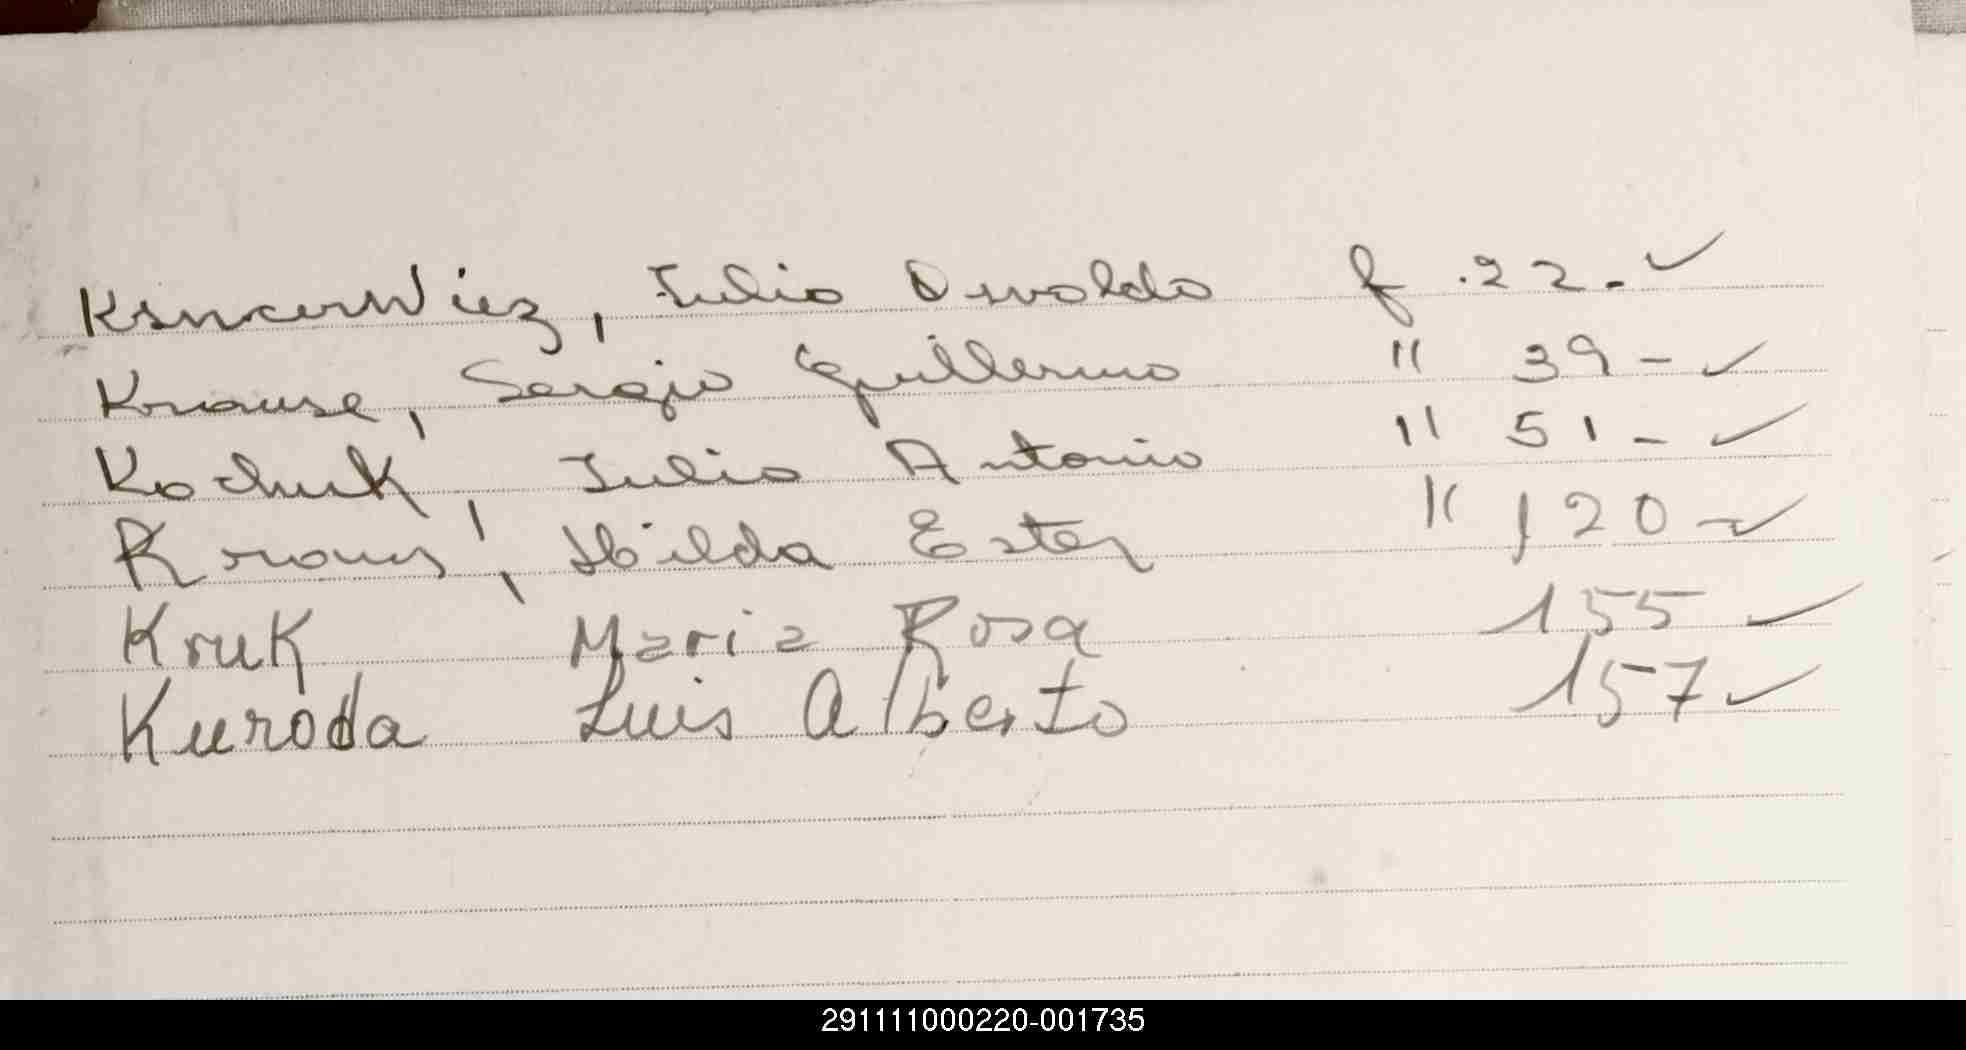 Julio Osvaldo f. 22.- ✓
Krause, Sergio Guillermo " 39 - ✓
Kochuk, Julio Antonio " 51 - ✓
Kraus, Hilda Ester " 120 - ✓
Kruk Maria Rosa 155 ✓
Kuroda Luis Alberto 157 ✓
291111000220-001735